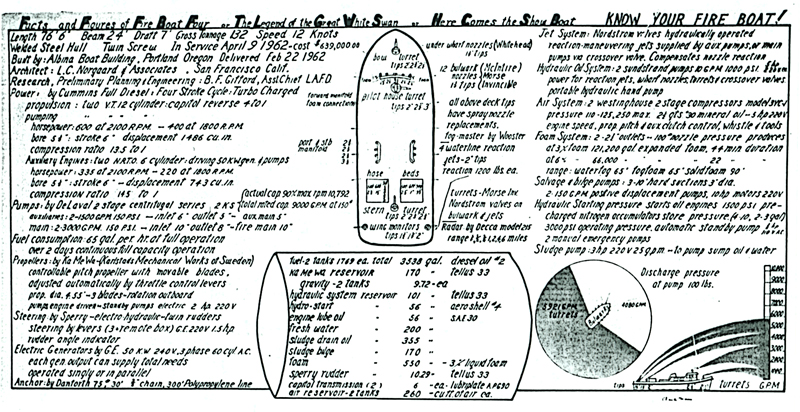 Facts and Figures of Fire Boat Four or The Legend of the Great White Swan or Here Comes the Show Boat KNOW YOUR FIRE BOAT!
Length 76'6" Beam 24' Draft 7' Gross Tonnage 132 Speed 12 Knots
Welded Steel Hull Twin Screw In Service April 9 1962-cost $639,000.00
Built by: Albina Boat Building, Portland Oregon Delivered Feb 22 1962
Architect: L.C. Norgaard & Associates, San Francisco Calif.
Research, Preliminary Planning & Engineering: B.F. Gifford, Asst Chief L.A.F.D
Power: by Cummins Full Diesel: Four Stroke Cycle: Turbo Charged
propulsion: two V.T. 12 cylinder: capitol reverse 4 to 1
pumping
horsepower: 600 at 2100 R.P.M. - 400 at 1800 R.P.M.
bore 5¼": stroke 6" displacement 1486 cu.in.
compression ratio 13.5 to 1
Auxiliary Engines: two N.R.T.O. 6 cylinder: driving 50KW gen. & pumps
horsepower: 335 at 2100 R.P.M. - 220 at 1800 R.P.M.
bore 5¼": stroke 6" displacement 743 cu.in.
compression ratio to 1
Pumps: by DeLaval 2 stage centrifugal series 2 KS
auxiliaries: 2-1500 GPM 150 P.S.I. - inlet 6" outlet 5" - aux. main 5"
main: 2-3000 G.P.M. 150 P.S.I. - inlet 10" outlet 8" - fire main 10"
Fuel consumption 65 gal. per hr. at full operation
over 2 days continuous full capacity operation
Propellers: by Ka Me Wa-(Karlstads Mechanical Works of Sweden)
controllable pitch propeller with movable blades,
adjusted automatically by throttle control levers
prop. dia. 4'.55"-3 blades-rotation outboard
pump engine driven-standby pumps electric 2 hp 220V
Steering by Sperry-electro-hydraulic-twin rudders
steering by levers (3+remote box) G.E. 220V 1.5hp
rudder angle indicator
Electric Generators by G.E. 50 K.W. 240V. 3 phase 60 cyl A.C.
each gen. output can supply total needs
operated singly or in parallel
Anchor: by Danforth 75# 30' chain, 300' Polypropylene line
under wharf nozzles (Whitehead)
bow turret
tips
12 bulwark (McIntire)
nozzles (Morse
tips (Invincible
pilot house turret
tips 2" 2½ 3
forward manifold
foam connection
all above deck tips
have spray nozzle
replacements.
fog-master by Wooster
4 waterline reaction
jets-2" tips
reaction 1200 lbs. ea.
port & stb
manifold
hose beds
turrets-Morse Inv.
Nordstrom valves on
bulwark & jets
stern turret
wing monitors
Radar by Decca model 215
range miles
(actual cap. 90% max rpm 10,792
total rated cap. 9000 G.P.M. at 150#
fuel-2 tanks 1769 ea. total 3538 gal. diesel oil #2
KA ME WA reservoir 170 " tellus 33
gravity-2 tanks 9.72-ea
hydraulic system reservoir 101 " tellus 33
hydro-start 56 " aeroshell #4
engine lube oil 56 " SAE 30
fresh water 200 "
sludge drain oil 355 "
sludge bilge 170 "
foam 550 " -3% liquid foam
sperry rudder 10.29- tellus 33
capitol transmission (2) 6 -ea.- lubriplate APG90
air reservoir-2 tanks 260 -cu.ft. of air ea.
Jet System: Nordstrom valves hydraulically operated
reaction-maneuvering jets supplied by aux pumps, or main
pumps via crossover valve. Compensates nozzle reaction
Hydraulic Oil System: 2 sundstrand pumps 10 GPM 1000 psi.
power for reaction jets, wharf nozzles, turrets, crossover valves
portable hydraulic hand pump
Air System: 2 westinghouse 2 stage compressors model
pressure 110-125, 250 max. 21 gts 30 mineral oil-3 hp 220V
engine speed, prop pitch & aux clutch control, whistle & tools
Foam System: 2-2½" outlets-100# nozzle pressure produces
at 3% foam 121,200 gal expanded foam, 44 min duration
at 6% " 66,000 " " 22 "
range: waterfog 65' fogfoam 65' solid foam 90'
Salvage & bilge pumps: 3-10'hard suctions 3" dia.
2-150 G.P.M. positive displacement pumps, 10hp motors 220V
Hydraulic Starting pressure starts all engines 1500 P.S.I. pre-
charged nitrogen accumulators store pressure
3000psi operating pressure, automatic standby pump
2 manual emergency pumps
Sludge pump: 3hp 220V 25 g.p.m. - to pump sump oil & water
Discharge pressure
at pump 100 lbs.
turrets
4080 G.P.M.
turrets
tips
turrets GPM